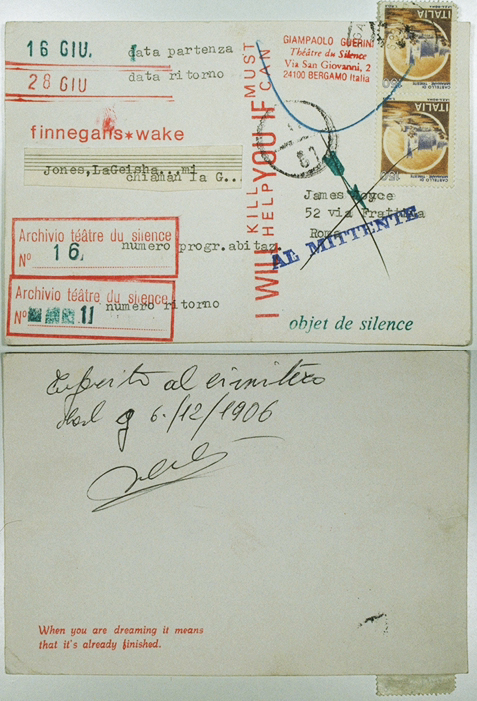 16 GIU. data partenza
28 GIU data ritorno
GIAMPAOLO GUERINI
Théâtre du Silence
Via San Giovanni, 2
24100 BERGAMO Italia
ITALIA
CASTELLO DI MIRAMARE - TRIESTE
150
ITALIA
CASTELLO DI MIRAMARE - TRIESTE
150
finnegans*wake
Jones,LaGeisha...mi
chiaman la G...
I WILL
KILL
HELP
YOU IF
MUST
CAN
James Joyce
52 via Frattina
Roma
AL MITTENTE
Archivio téâtre du silence
N° 16 numero progr.abitaz
Archivio téâtre du silence
N° 11 numero ritorno
objet de silence
al cimitero
6./12/1906
When you are dreaming it means
that it's already finished.